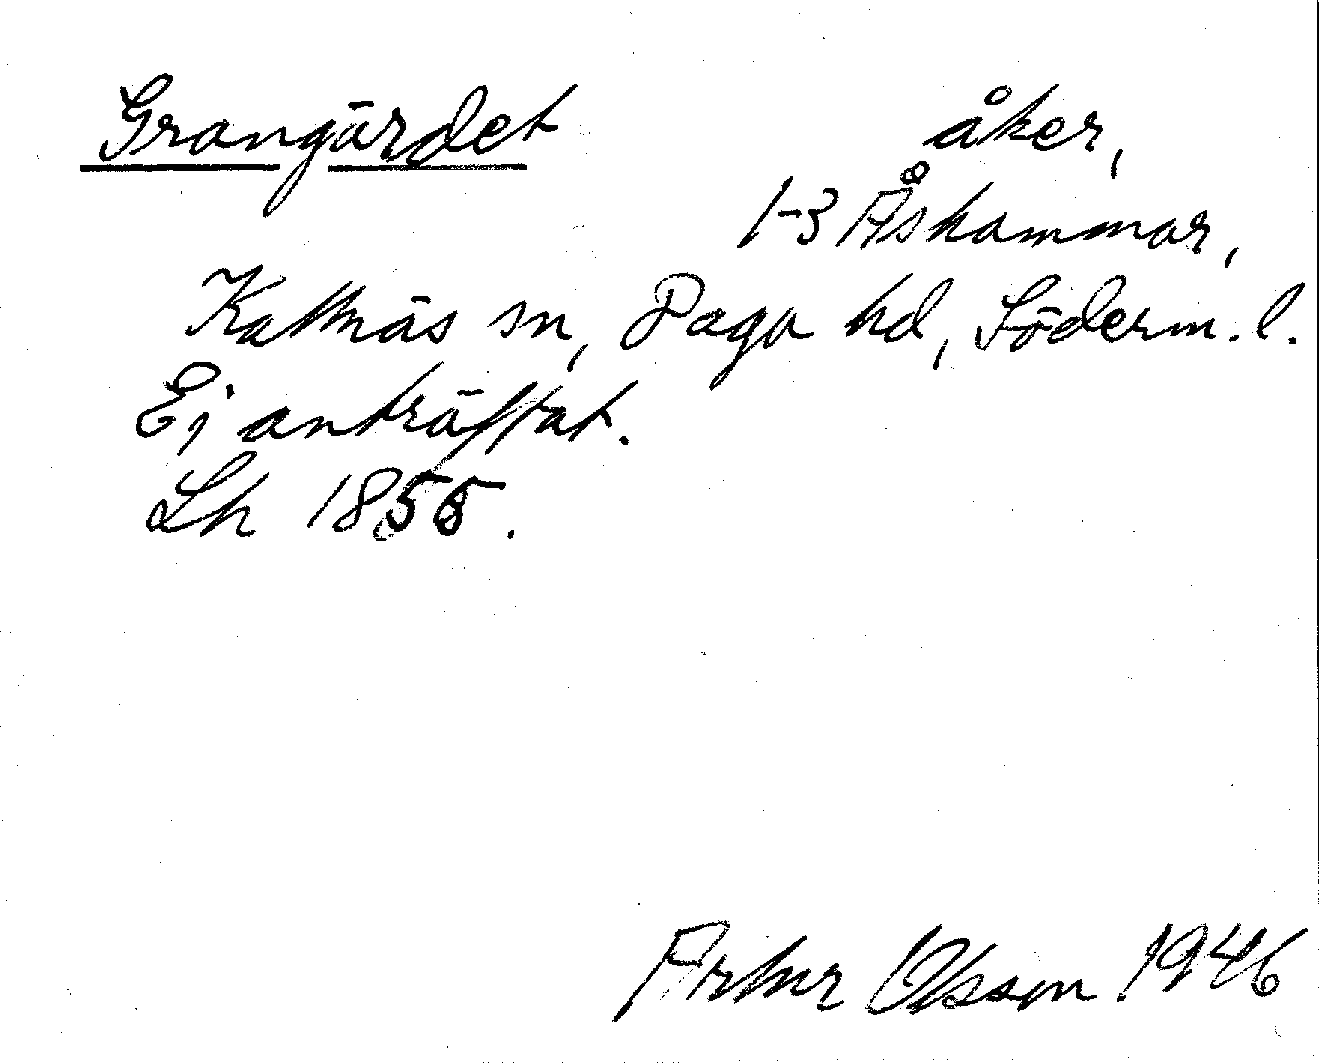 Grangärdet åker,
1-3 Åskammar,
Kattnäs sn, Daga hd, Söderm. l.
Ej anträffat.
Lh 1855.
Artur Olsson 1946